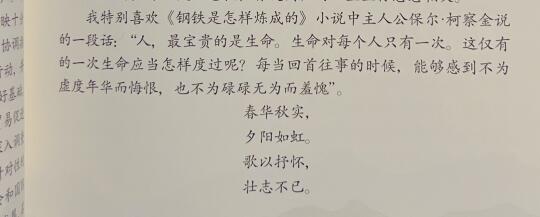 我特别喜欢《钢铁是怎样炼成的》小说中主人公保尔·柯察金说
的一段话：“人，最宝贵的是生命。生命对每个人只有一次。这仅有
的一次生命应当怎样度过呢？每当回首往事的时候，能够感到不为
虚度年华而悔恨，也不为碌碌无为而羞愧”。
春华秋实，
夕阳如虹。
歌以抒怀，
壮志不已。